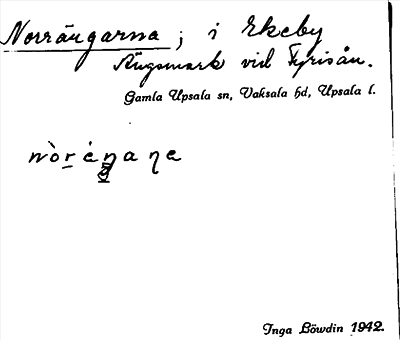 Norrängarna ; i Ekeby
Ängsmark vid Fyrisån.
Gamla Upsala sn, Vaksala hd, Upsala l.
Inga Löwdin 1942.